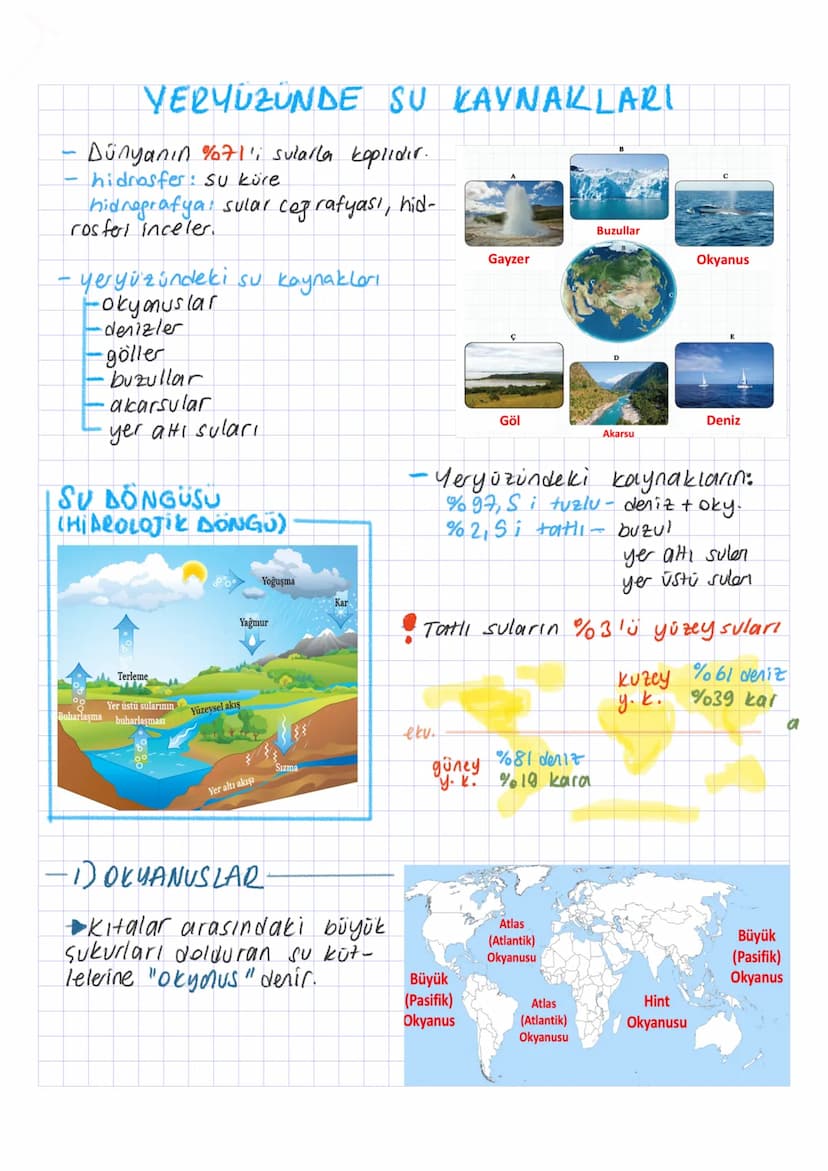 YERYÜZÜNDE SU KAYNAKLARI
- Dünyanın %71'i sularla kaplıdır.
- hidrosfer: su küre
hidrografya: sular coğrafyası, hid-
rosferi inceler.
- yeryüzündeki su kaynakları
- okyanuslar
- denizler
- göller
- buzullar
- akarsular
yer altı suları
A
Gayzer
B
Buzullar
C
Okyanus
A
B
C
D
Ç
Göl
D
Akarsu
E
Deniz
SU DÖNGÜSÜ
(HİDROLOJİK DÖNGÜ)
Yoğuşma
Kar
Yağmur
Terleme
Buharlaşma
Yer üstü sularının
buharlaşması
Yüzeysel akış
Sızma
Yer altı akışı
- Yeryüzündeki kaynakların:
%97,5 i tuzlu - deniz + oky.
%2,5 i tatlı - buzul
yer altı suları
yer üstü suları
! Tatlı suların %3'ü yüzey suları
kuzey %61 deniz
y. k. %39 kar
a
ekv.
güney %81 deniz
y. k. %19 kara
1) OKYANUSLAR
Kıtalar arasındaki büyük
çukurları dolduran su küt-
lelerine "okyanus" denir.
Atlas
(Atlantik)
Okyanusu
Büyük
(Pasifik)
Okyanus
Büyük
(Pasifik)
Okyanus
Atlas
(Atlantik)
Okyanusu
Hint
Okyanusu